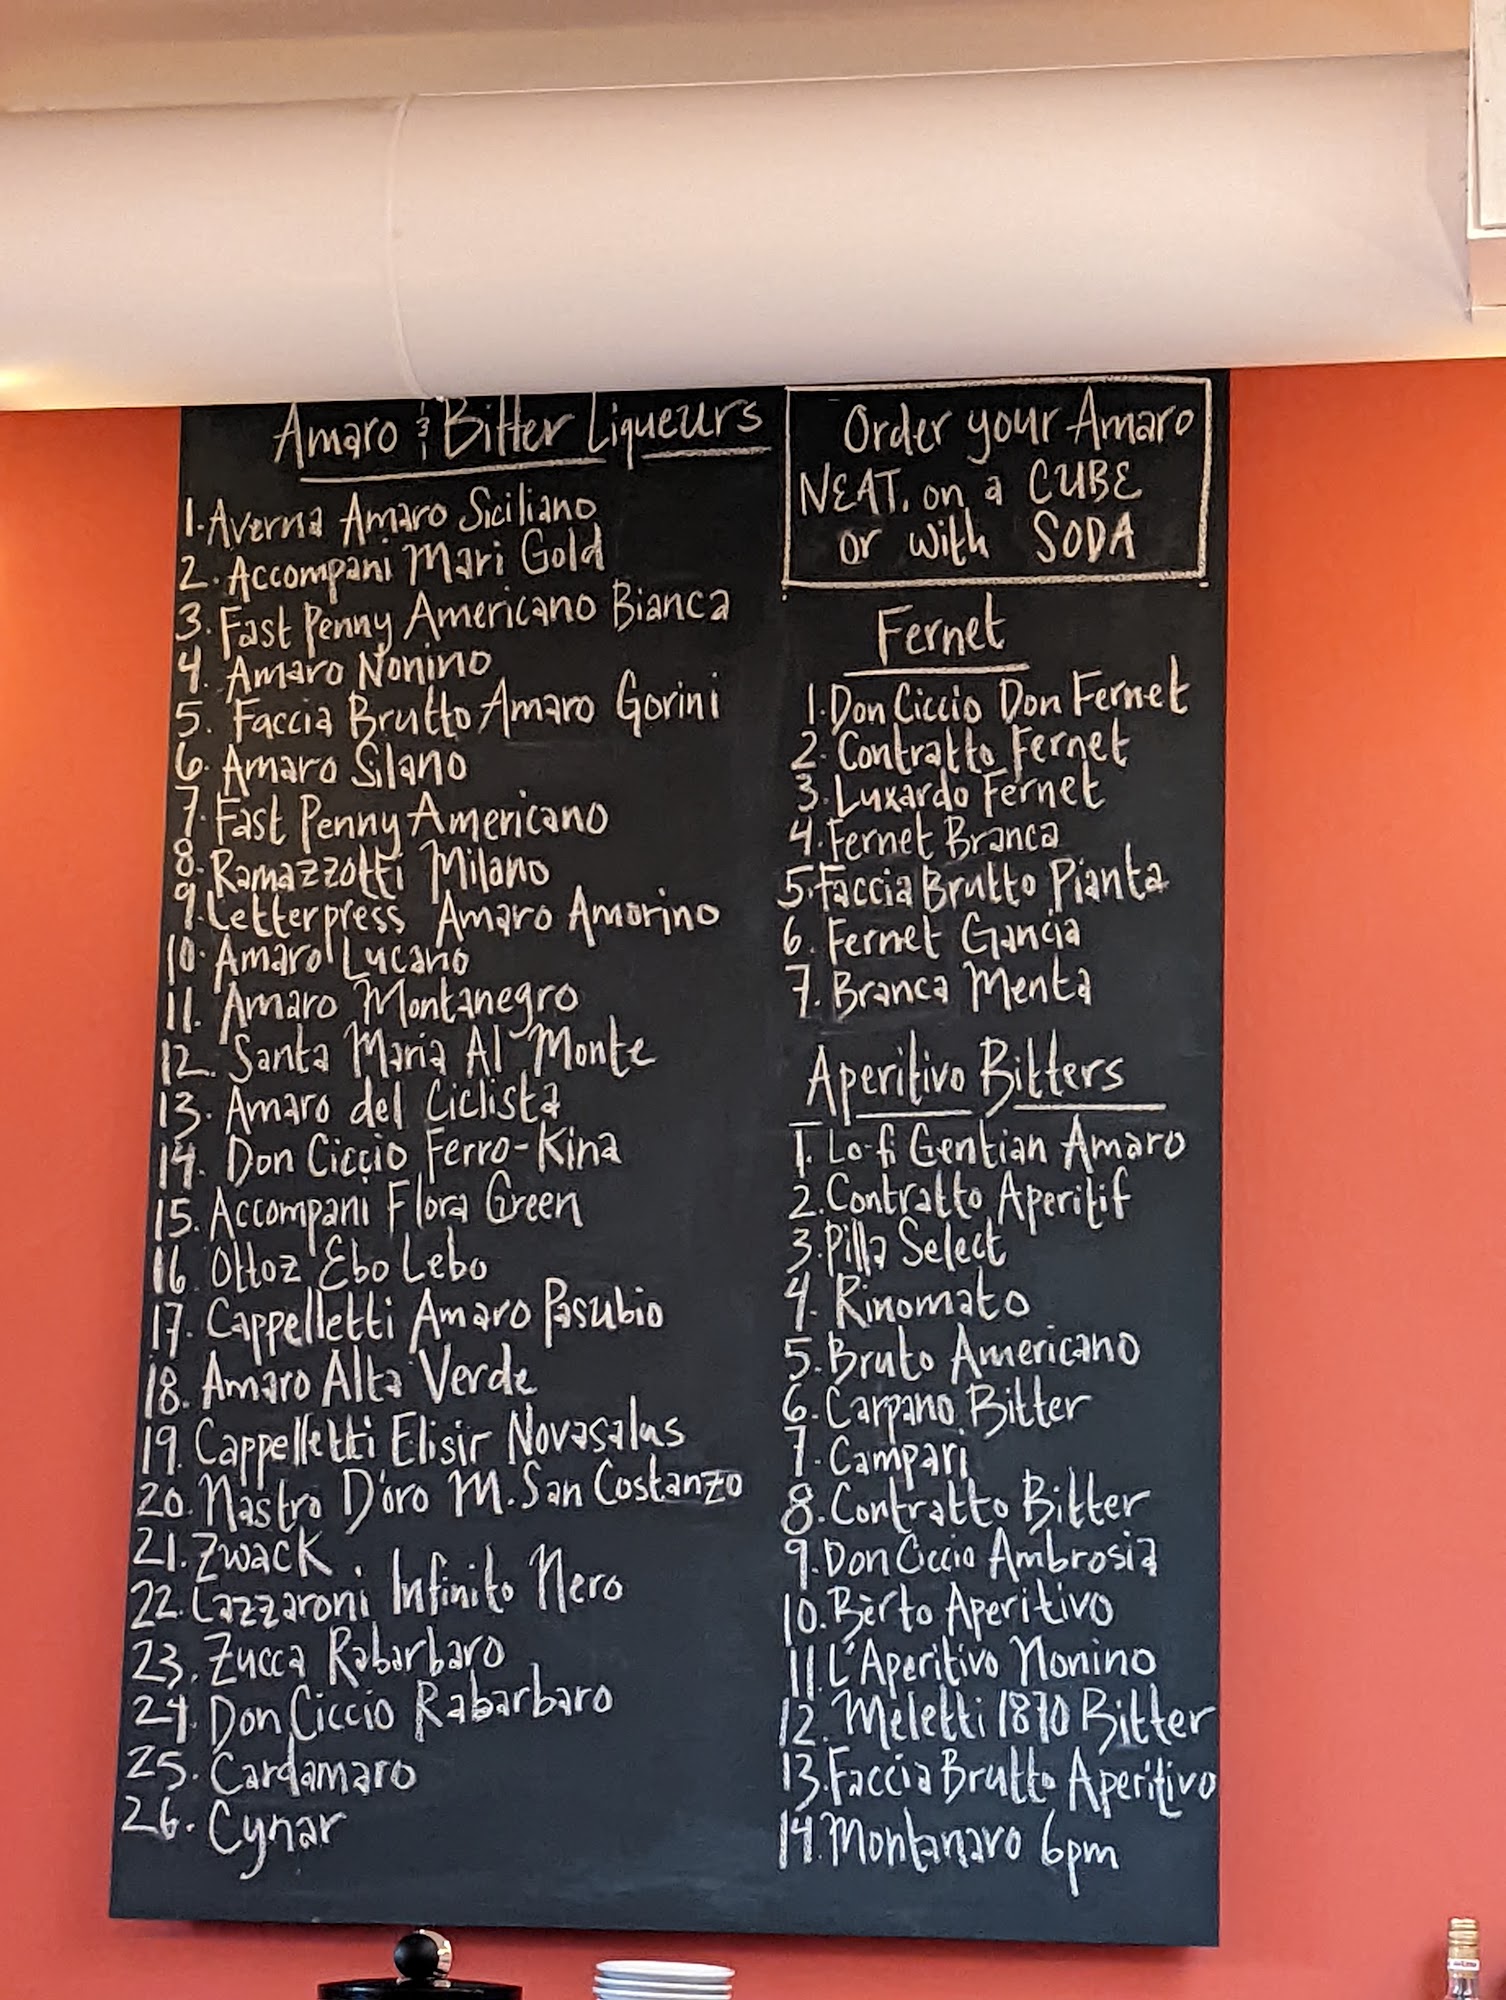 Amaro & Bitter Liqueurs
1. Averna Amaro Siciliano
2. Accompani Mari Gold
3. Fast Penny Americano Bianca
4. Amaro Nonino
5. Faccia Brutto Amaro Gorini
6. Amaro Silano
7. Fast Penny Americano
8. Ramazzotti Milano
9. Letterpress Amaro Amorino
10. Amaro Lucano
11. Amaro Montanegro
12. Santa Maria Al Monte
13. Amaro del Ciclista
14. Don Ciccio Ferro-Kina
15. Accompani Flora Green
16 Ottoz Ebo Lebo
17. Cappelletti Amaro Pasubio
18. Amaro Alta Verde
19. Cappelletti Elisir Novasalus
20. Nastro D'oro M. San Costanzo
21. Zwack
22. Lazzaroni Infinito Nero
23. Zucca Rabarbaro
24. Don Ciccio Rabarbaro
25. Cardamaro
26. Cynar
Order your Amaro
NEAT, on a CUBE
or with SODA
Fernet
1. Don Ciccio Don Fernet
2. Contratto Fernet
3. Luxardo Fernet
4. Fernet Branca
5. Faccia Brutto Pianta
6. Fernet Gancia
7. Branca Menta
Aperitivo Bitters
1. Lo-fi Gentian Amaro
2. Contratto Aperitif
3. Pilla Select
4. Rinomato
5. Bruto Americano
6. Carpano Bitter
7. Campari
8. Contratto Bitter
9. Don Ciccio Ambrosia
10. Bèrto Aperitivo
11. L'Aperitivo Nonino
12. Meletti 1870 Bitter
13. Faccia Brutto Aperitivo
14. Montanaro 6pm